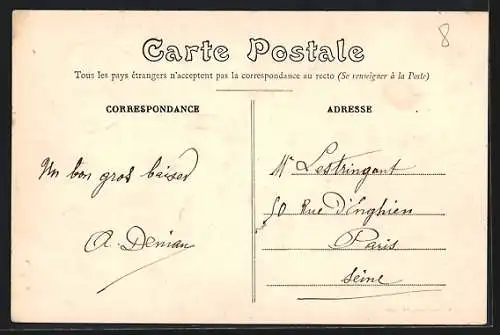 8
Carte Postale
Tous les pays étrangers n'acceptent pas la correspondance au recto (Se renseigner à la Poste)
CORRESPONDANCE
Un bon gros baiser
A. Denian
ADRESSE
Mr Lestringant
50 Rue d'Enghien
Paris
Seine